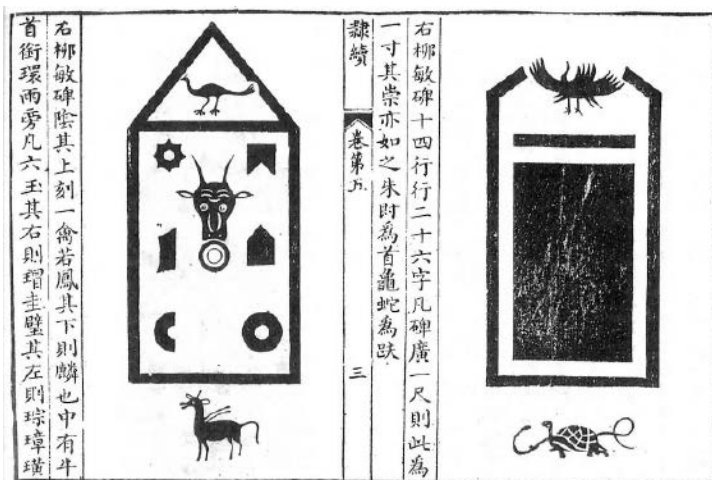 右柳敏碑十四行行二十六字凡碑廣一尺則此為
一寸其崇亦如之朱為首龜蛇為趺
隸續
卷第五
三
右柳敏碑陰其上刻一禽若鳳其下則麟也中有牛
首銜環兩旁凡六玉其右則瑁圭璧其左則琮璋璜